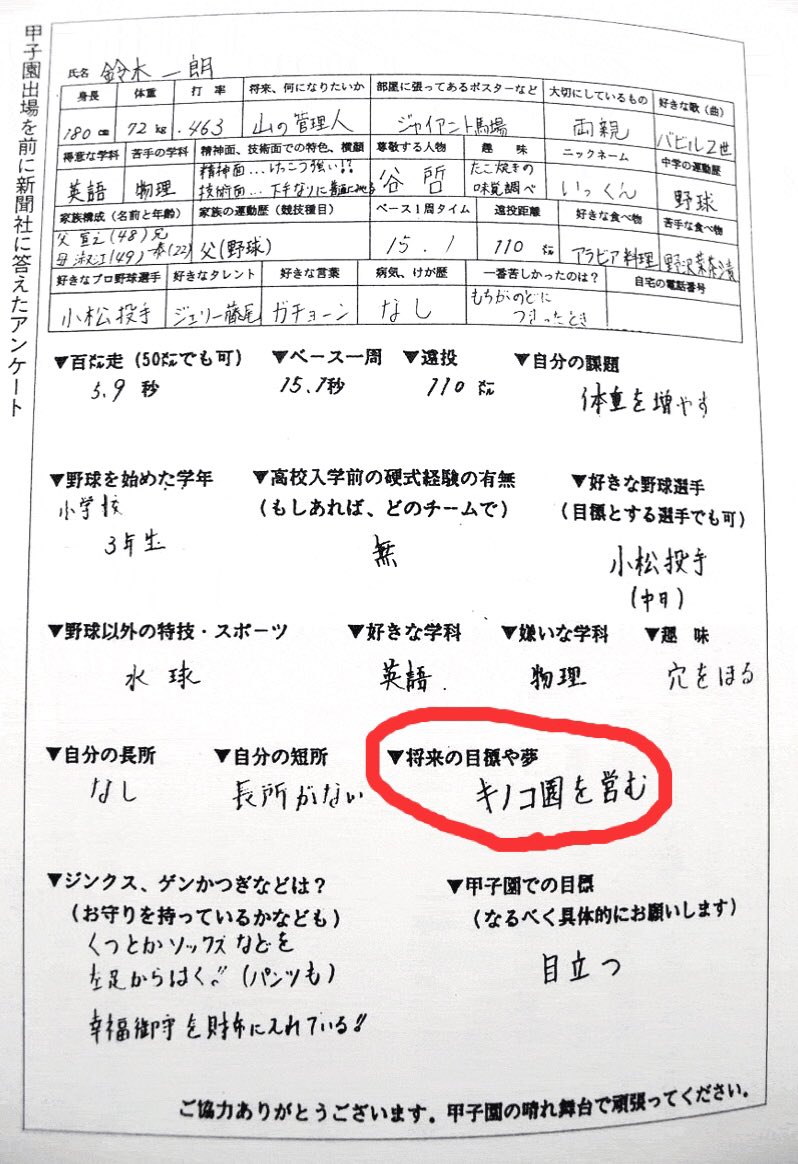 甲子園出場を前に新聞社に答えたアンケート
氏名 鈴木一朗
身長 体重 打率 将来、何になりたいか 部屋に張ってあるポスターなど 大切にしているもの 好きな歌(曲)
180㎝ 72kg .463 山の管理人 ジャイアント馬場 両親 バビル2世
得意な学科 苦手の学科 精神面、技術面での特色、横顔 尊敬する人物 趣味 ニックネーム 中学の運動歴
英語 物理 精神面…けっこう強い!? 谷哲 たこ焼きの いっくん 野球
技術面…下手なりに 味覚調べ
家族構成(名前と年齢) 家族の運動歴(競技種目) ベース1周タイム 遠投距離 好きな食べ物 苦手な食べ物
父 宣之(48) 兄 父(野球) 15.1 110㍍ アラビア料理 野沢菜茶漬
母 淑江(49) 一泰(22)
好きなプロ野球選手 好きなタレント 好きな言葉 病気、けが歴 一番苦しかったのは? 自宅の電話番号
小松投手 ジェリー藤尾 ガチョーン なし もちがのどに
つまったとき
▼百㍍走(50㍍でも可) ▼ベース一周 ▼遠投 ▼自分の課題
5.9秒 15.1秒 110㍍ 体重を増やす
▼野球を始めた学年 ▼高校入学前の硬式経験の有無 ▼好きな野球選手
小学校 (もしあれば、どのチームで) (目標とする選手でも可)
3年生 無 小松投手
(中日)
▼野球以外の特技・スポーツ ▼好きな学科 ▼嫌いな学科 ▼趣味
水球 英語 物理 穴をほる
▼自分の長所 ▼自分の短所 ▼将来の目標や夢
なし 長所がない キノコ園を営む
▼ジンクス、ゲンかつぎなどは? ▼甲子園での目標
(お守りを持っているかなども) (なるべく具体的にお願いします)
くつとかソックスなどを 目立つ
左足からはく!!(パンツも)
幸福御守を財布に入れている!!
ご協力ありがとうございます。甲子園の晴れ舞台で頑張ってください。